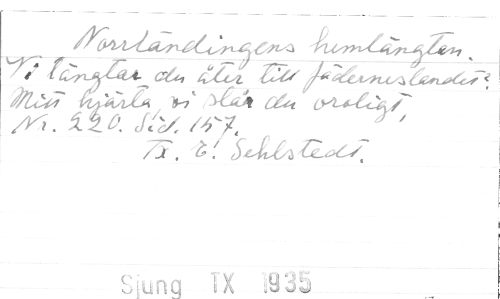 Norrländingens hemlängtan.
Vi längtar du åter till fäderneslandet?
Mitt hjärta, vi slår du oroligt,
Nr. 220. Sid. 157.
Tx. E. Sehlstedt.
Sjung TX 1935